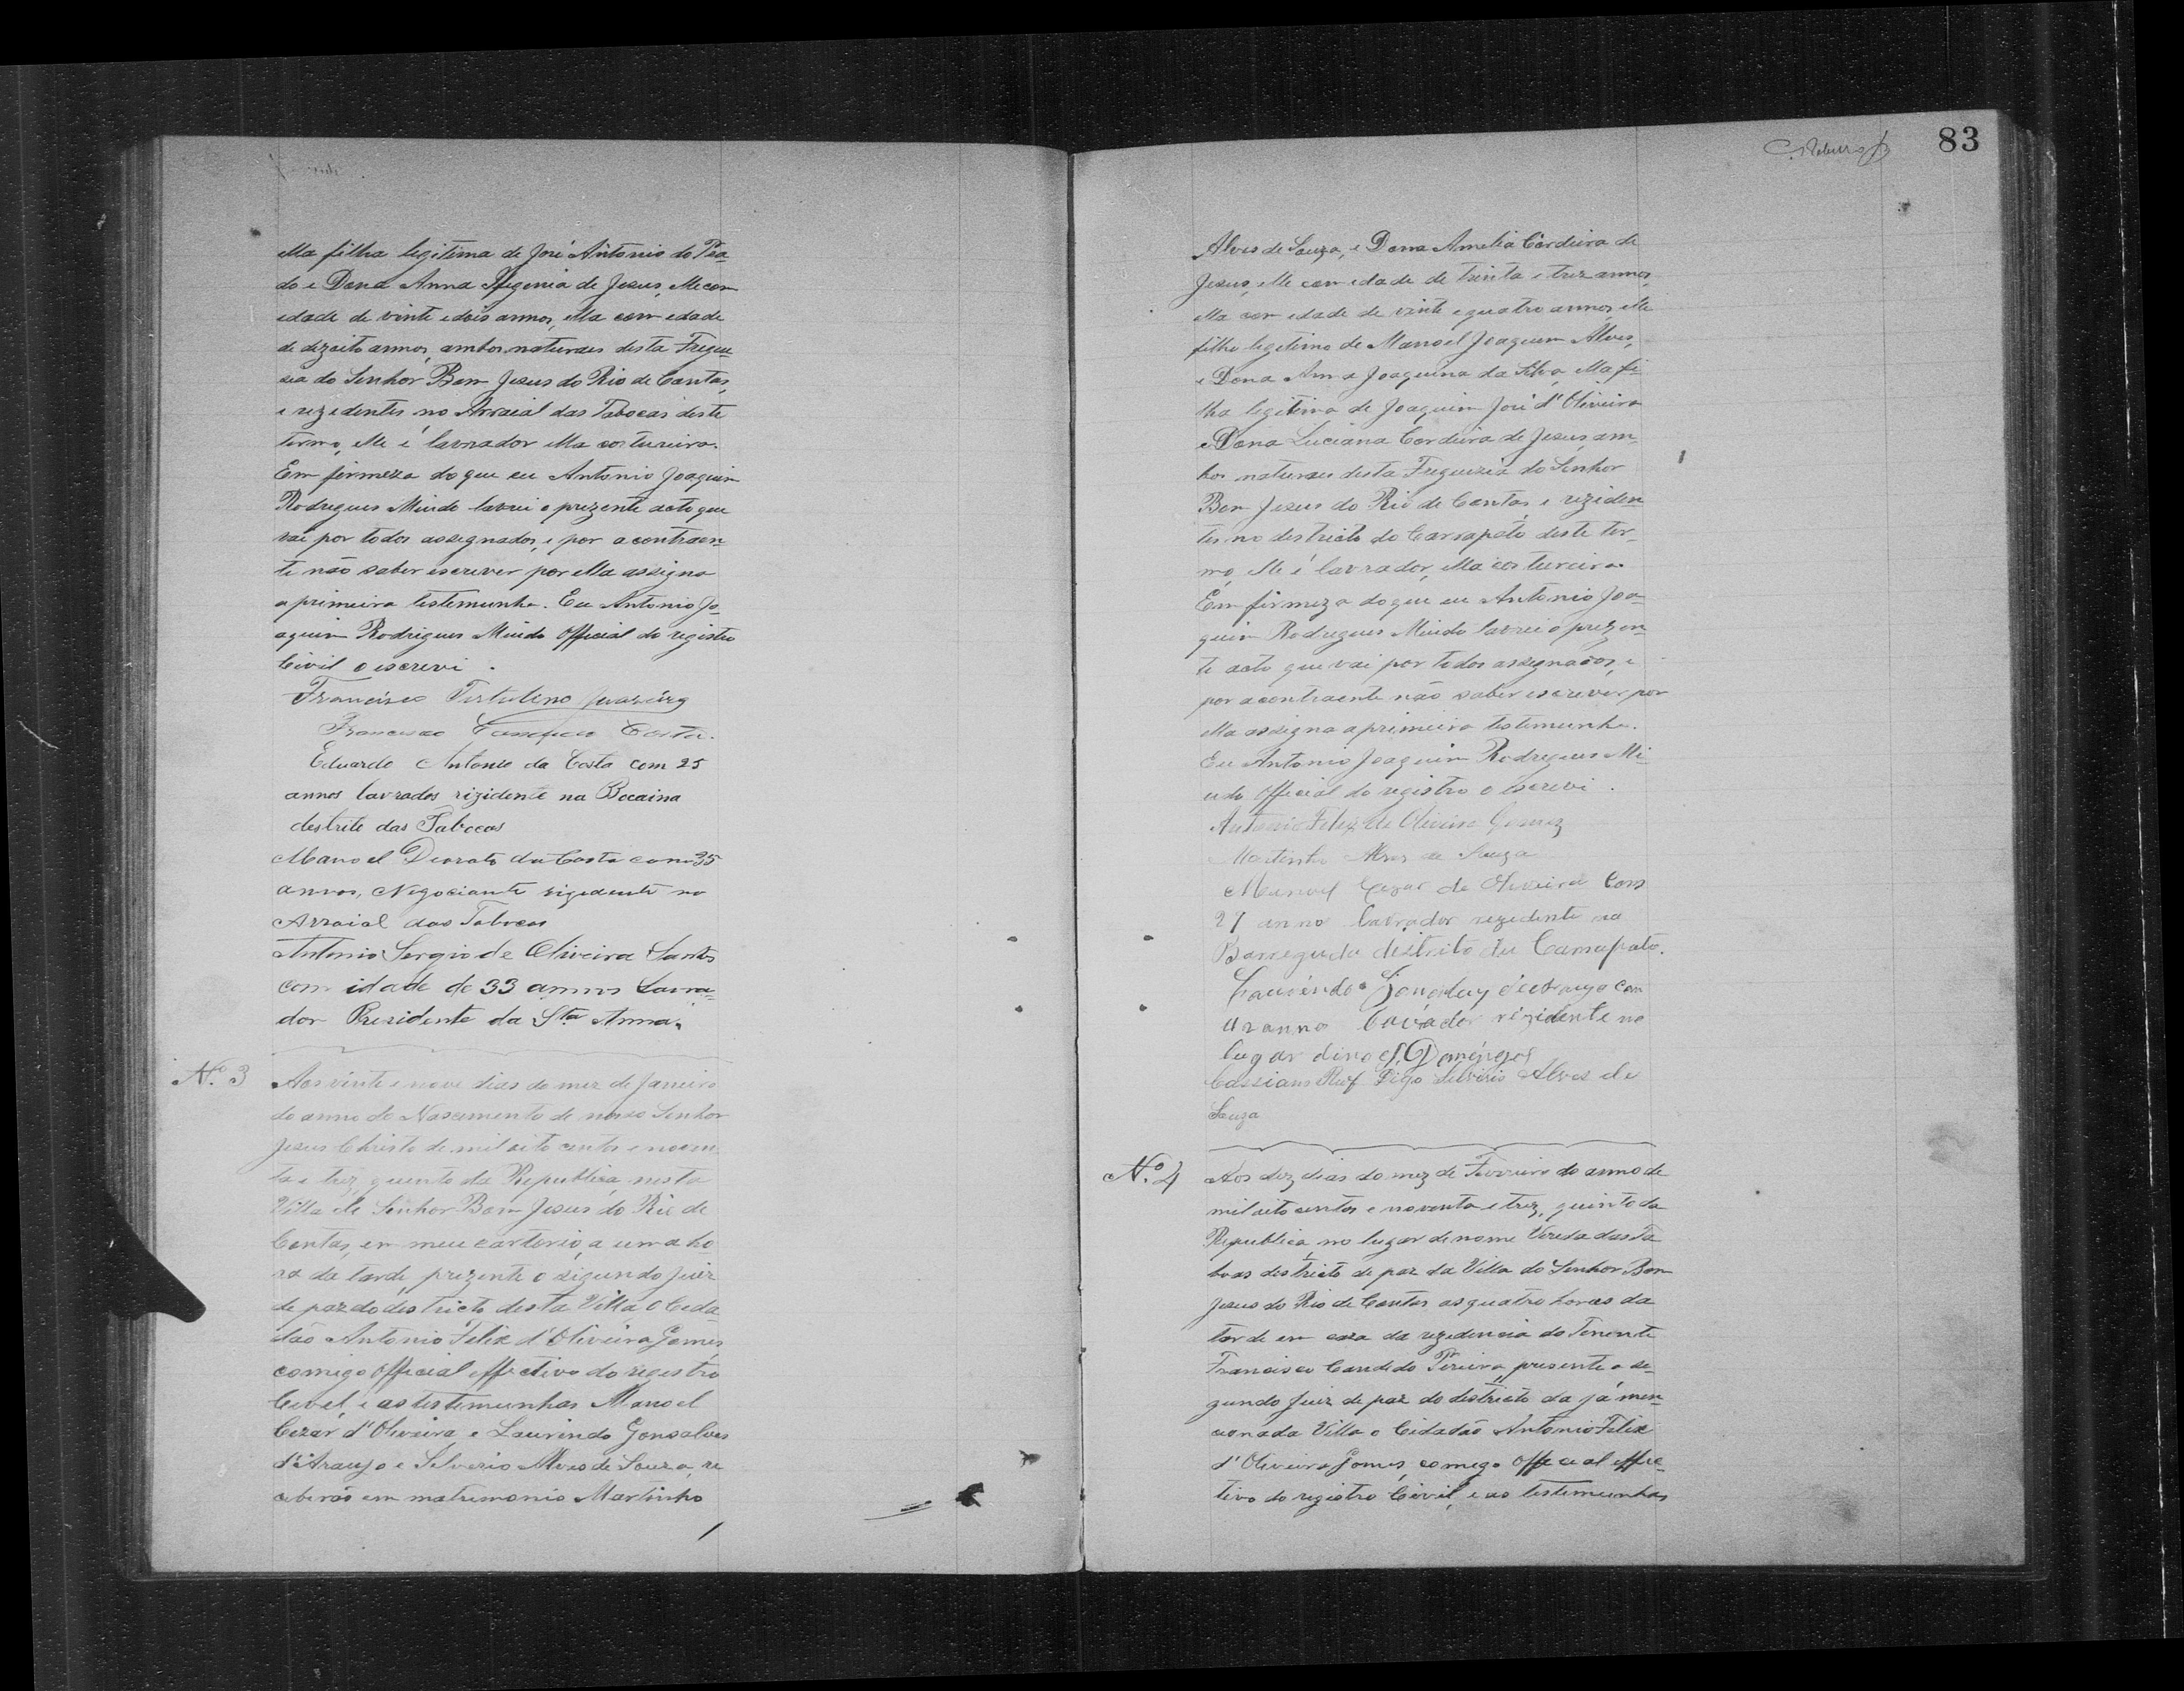 ella filha legitima de José Antonio do Pra-
do e Dona Anna Ifigenia de Jesus, elle com
edade de vinte e dois annos, ella com edade
de dezoito annos, ambos naturaes desta Fregue-
sia do Senhor Bom Jesus do Rio de Contas,
e rezedentes no Arraial das Tabocas deste
termo, elle é lavrador ella costureira.
Em firmeza do que eu Antonio Joaquim
Rodrigues Miudo lavrei o prezente acto que
vai por todos assegnados, e por a contraen-
te não saber escrever por ella assigna
a primeira testemunha. Eu Antonio Jo-
aquim Rodrigues Miudo Official do registro
Civil o escrevi.
Francisco Tertulino
Francisco Costa.
Eduardo Antonio da Costa com 25
annos lavrador rizidente na Bocaina
destrito das Tabocas
Manoel Deorato da Costa com 35
annos, Negociante rigedente no
Arraial das Tabocas
Antonio Sergio de Oliveira Santos
com idade de 33 annos Lavra-
dor Rezidente da Sta Anna.
N.º 3
Aos vinte e nove dias do mez de Janeiro
do anno do Nascimento de nosso Senhor
Jesus Christo de mil oito centos e noven-
ta e trez, quinto da Republica, nesta
Villa do Senhor Bom Jesus do Rio de
Contas, em meu cartorio, a uma ho-
ra da tarde prezente o segundo Juiz
de paz do destricto desta Villa o Cida-
dão Antonio Felix d'Oliveira Gomes,
comigo Official effectivo do registro
Civel, e as testemunhas Manoel
Cezar d'Oliveira e Laurindo Gonsalves
d'Araujo e Silverio Alves de Souza, re
ceberão em matremonio Martinho
83
Alves de Souza, e Dona Amelia Cordeira de
Jesus, elle com edade de trinta e trez annos,
ella com edade de vinte e quatro annos, elle
filho legitimo de Manoel Joaquim Alves,
e Dona Anna Joaquina da Silva, ella fi-
lha legitima de Joaquim José d'Oliveira
e Dona Luciana Cordeira de Jesus, am-
bos naturaes desta Freguezia do Senhor
Bom Jesus do Rio de Contas, e reziden-
tes no destricto do Carrapato deste ter-
mo, elle é lavrador, ella costureira.
Em firmeza do que eu Antonio Joa-
quim Rodrigues Miudo lavrei o prezen-
te acto que vai por todos assegnados, e
por a contraente não saber escrever por
ella assigna a primeira testemunha.
Eu Antonio Joaquim Rodrigues Mi-
udo Official do registro o escrevi.
Antonio Felix de Oliveira Gomes
Martinho Alves de Souza
Manoel Cezar de Oliveira Com
27 anno lavrador rezedente na
Barreguda destrito du Carrapato.
com
anno Lavrador rezidente no
lugar Domingos
Cassiano Silverio Alves de
Souza
N.º 4
Aos dez dias do mez de Fevereiro do anno de
mil oito centos e noventa e trez, quinto da
Republica, no lugar de nome Vereda das Ta
bocas destricto de paz da Villa do Senhor Bom
Jesus do Rio de Contas as quatro horas da
tarde em caza da rezedencia do Tenente
Francisco Candido Pereira, presente o se-
gundo Juiz de paz do destricto da já men-
cionada Villa o Cidadão Antonio Felix
d'Oliveira Gomes, comego Official effec-
tivo do registro Civil, e as testemunhas